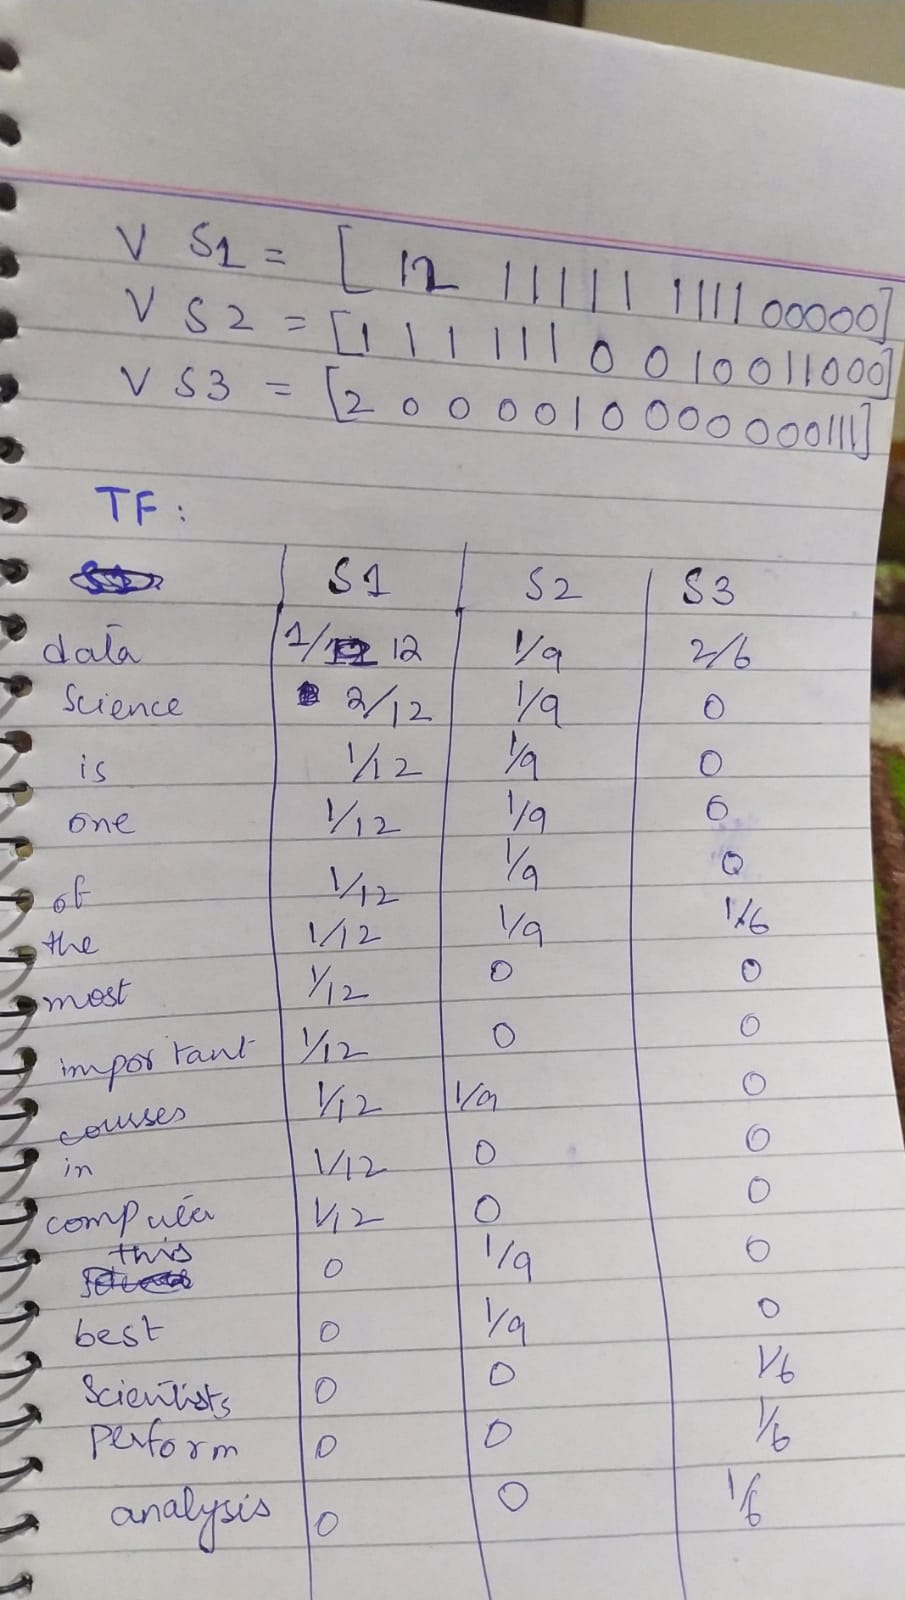 V S1 = [ 12 11111 1111 00000]
V S2 = [1 1 1 1 1 1 0 0 1 0 0 1 1 0 0 0]
V S3 = [2 0 0 0 0 1 0 0 0 0 0 0 0 1 1 1]
TF :
S1 S2 S3
data 1/12 1/9 2/6
Science 2/12 1/9 0
is 1/12 1/9 0
one 1/12 1/9 0
of 1/12 1/9 0
the 1/12 1/9 1/6
most 1/12 0 0
important 1/12 0 0
courses 1/12 1/9 0
in 1/12 0 0
computer 1/12 0 0
this 0 1/9 0
best 0 1/9 0
Scientists 0 0 1/6
Perform 0 0 1/6
analysis 0 0 1/6